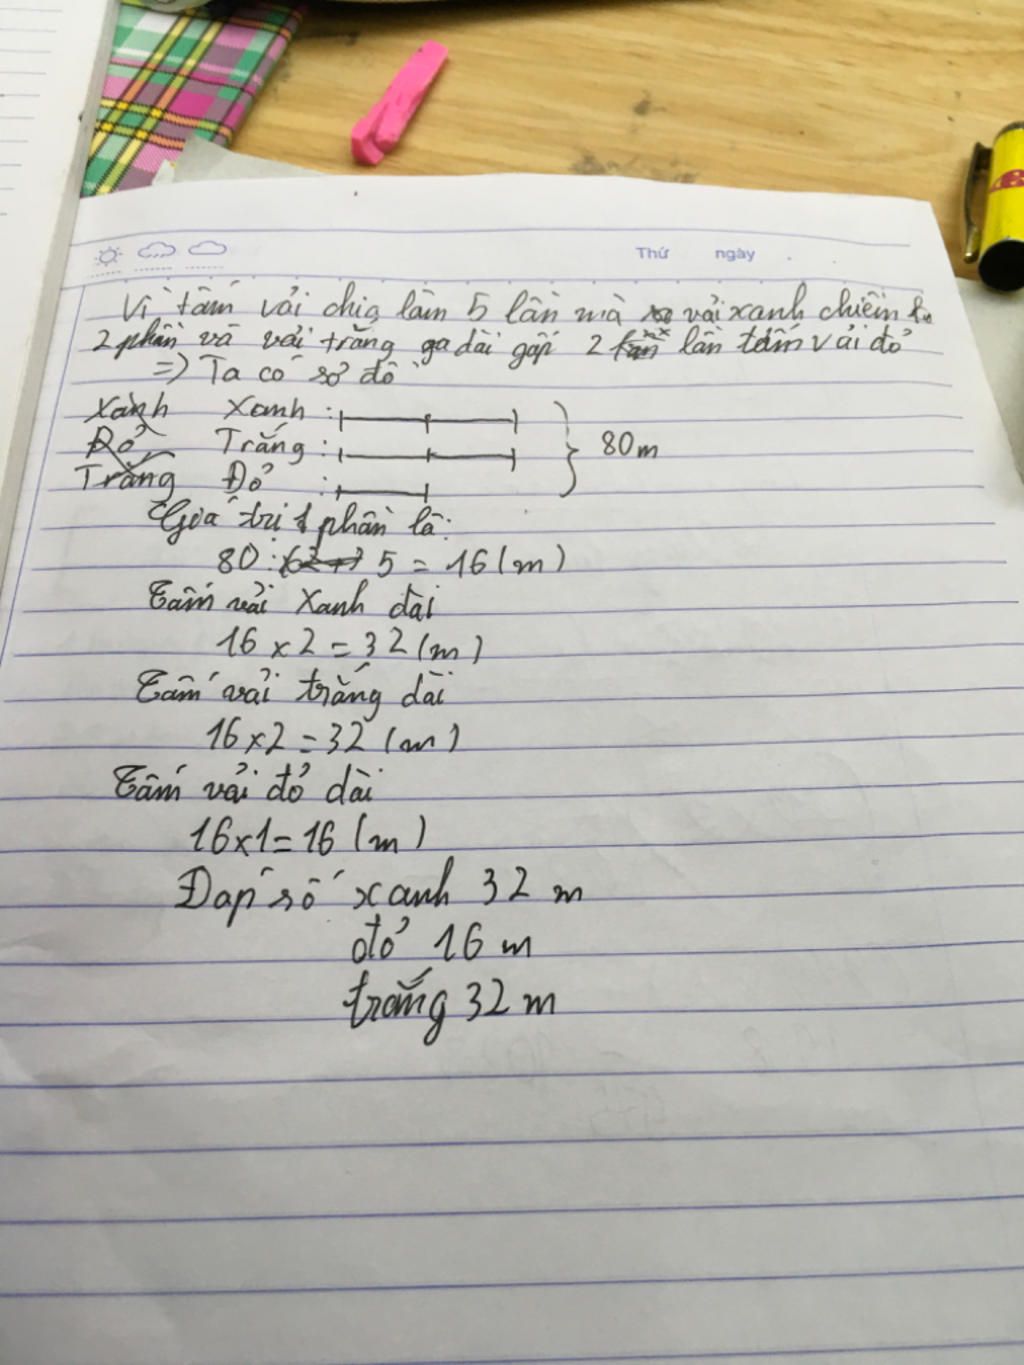 Thứ ngày
Vì tấm vải chia làm 5 lần mà vải xanh chiếm
2 phần và vải trắng dài gấp 2 lần tấm vải đỏ
=> Ta có sơ đồ
Xanh Xanh :
Đỏ Trắng : 80m
Trắng Đỏ :
Giá trị 1 phần là:
80 : 5 = 16 (m)
Tấm vải xanh dài
16 x 2 = 32 (m)
Tấm vải trắng dài
16 x 2 = 32 (m)
Tấm vải đỏ dài
16 x 1 = 16 (m)
Đáp số xanh 32 m
đỏ 16 m
trắng 32 m